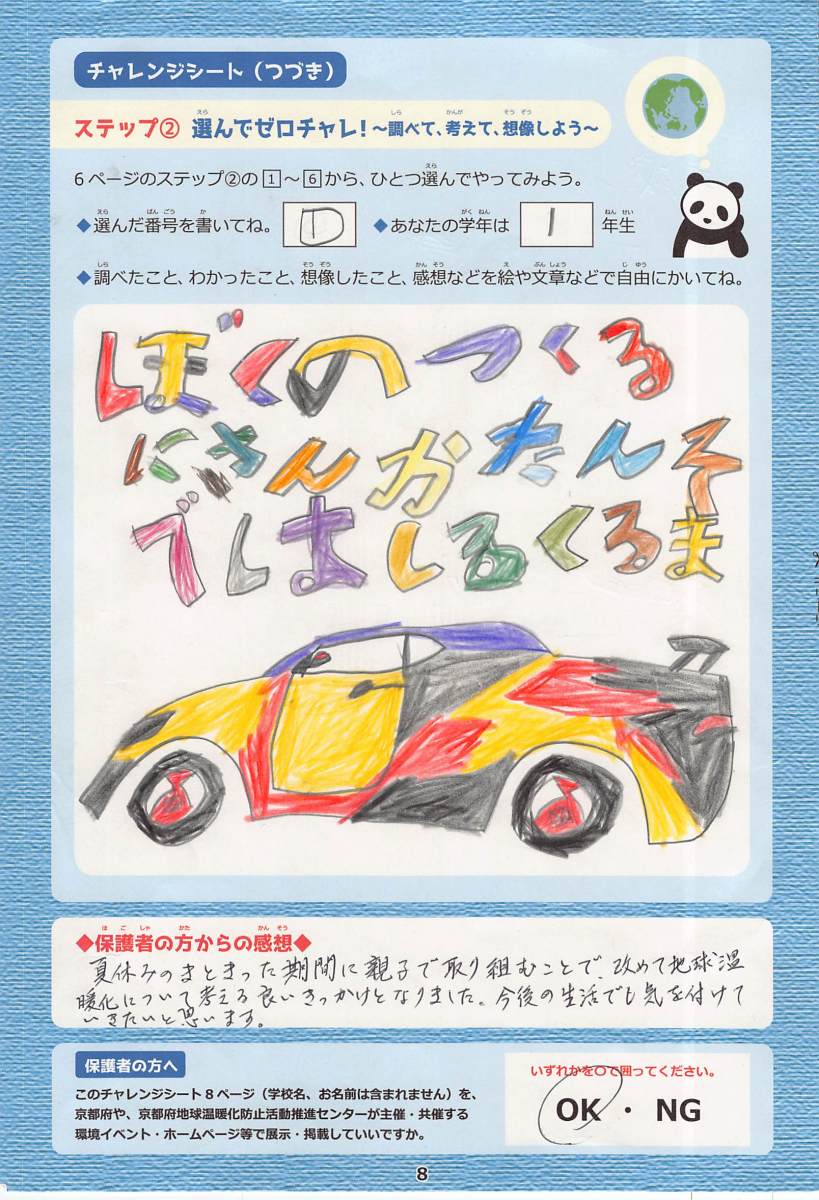 チャレンジシート（つづき）
ステップ② 選んでゼロチャレ！～調べて、考えて、想像しよう～
6ページのステップ②の1～6から、ひとつ選んでやってみよう。
◆選んだ番号を書いてね。 ◆あなたの学年は 1 年生
◆調べたこと、わかったこと、想像したこと、感想などを絵や文章などで自由にかいてね。
ぼくのつくる
にさんかたんそ
ではしるくるま
◆保護者の方からの感想◆
夏休みのまとまった期間に親子で取り組むことで、改めて地球温
暖化について考える良いきっかけとなりました。今後の生活でも気を付けて
いきたいと思います。
保護者の方へ
このチャレンジシート8ページ（学校名、お名前は含まれません）を、
京都府や、京都府地球温暖化防止活動推進センターが主催・共催する
環境イベント・ホームページ等で展示・掲載していいですか。
いずれかを〇で囲ってください。
OK ・ NG
8